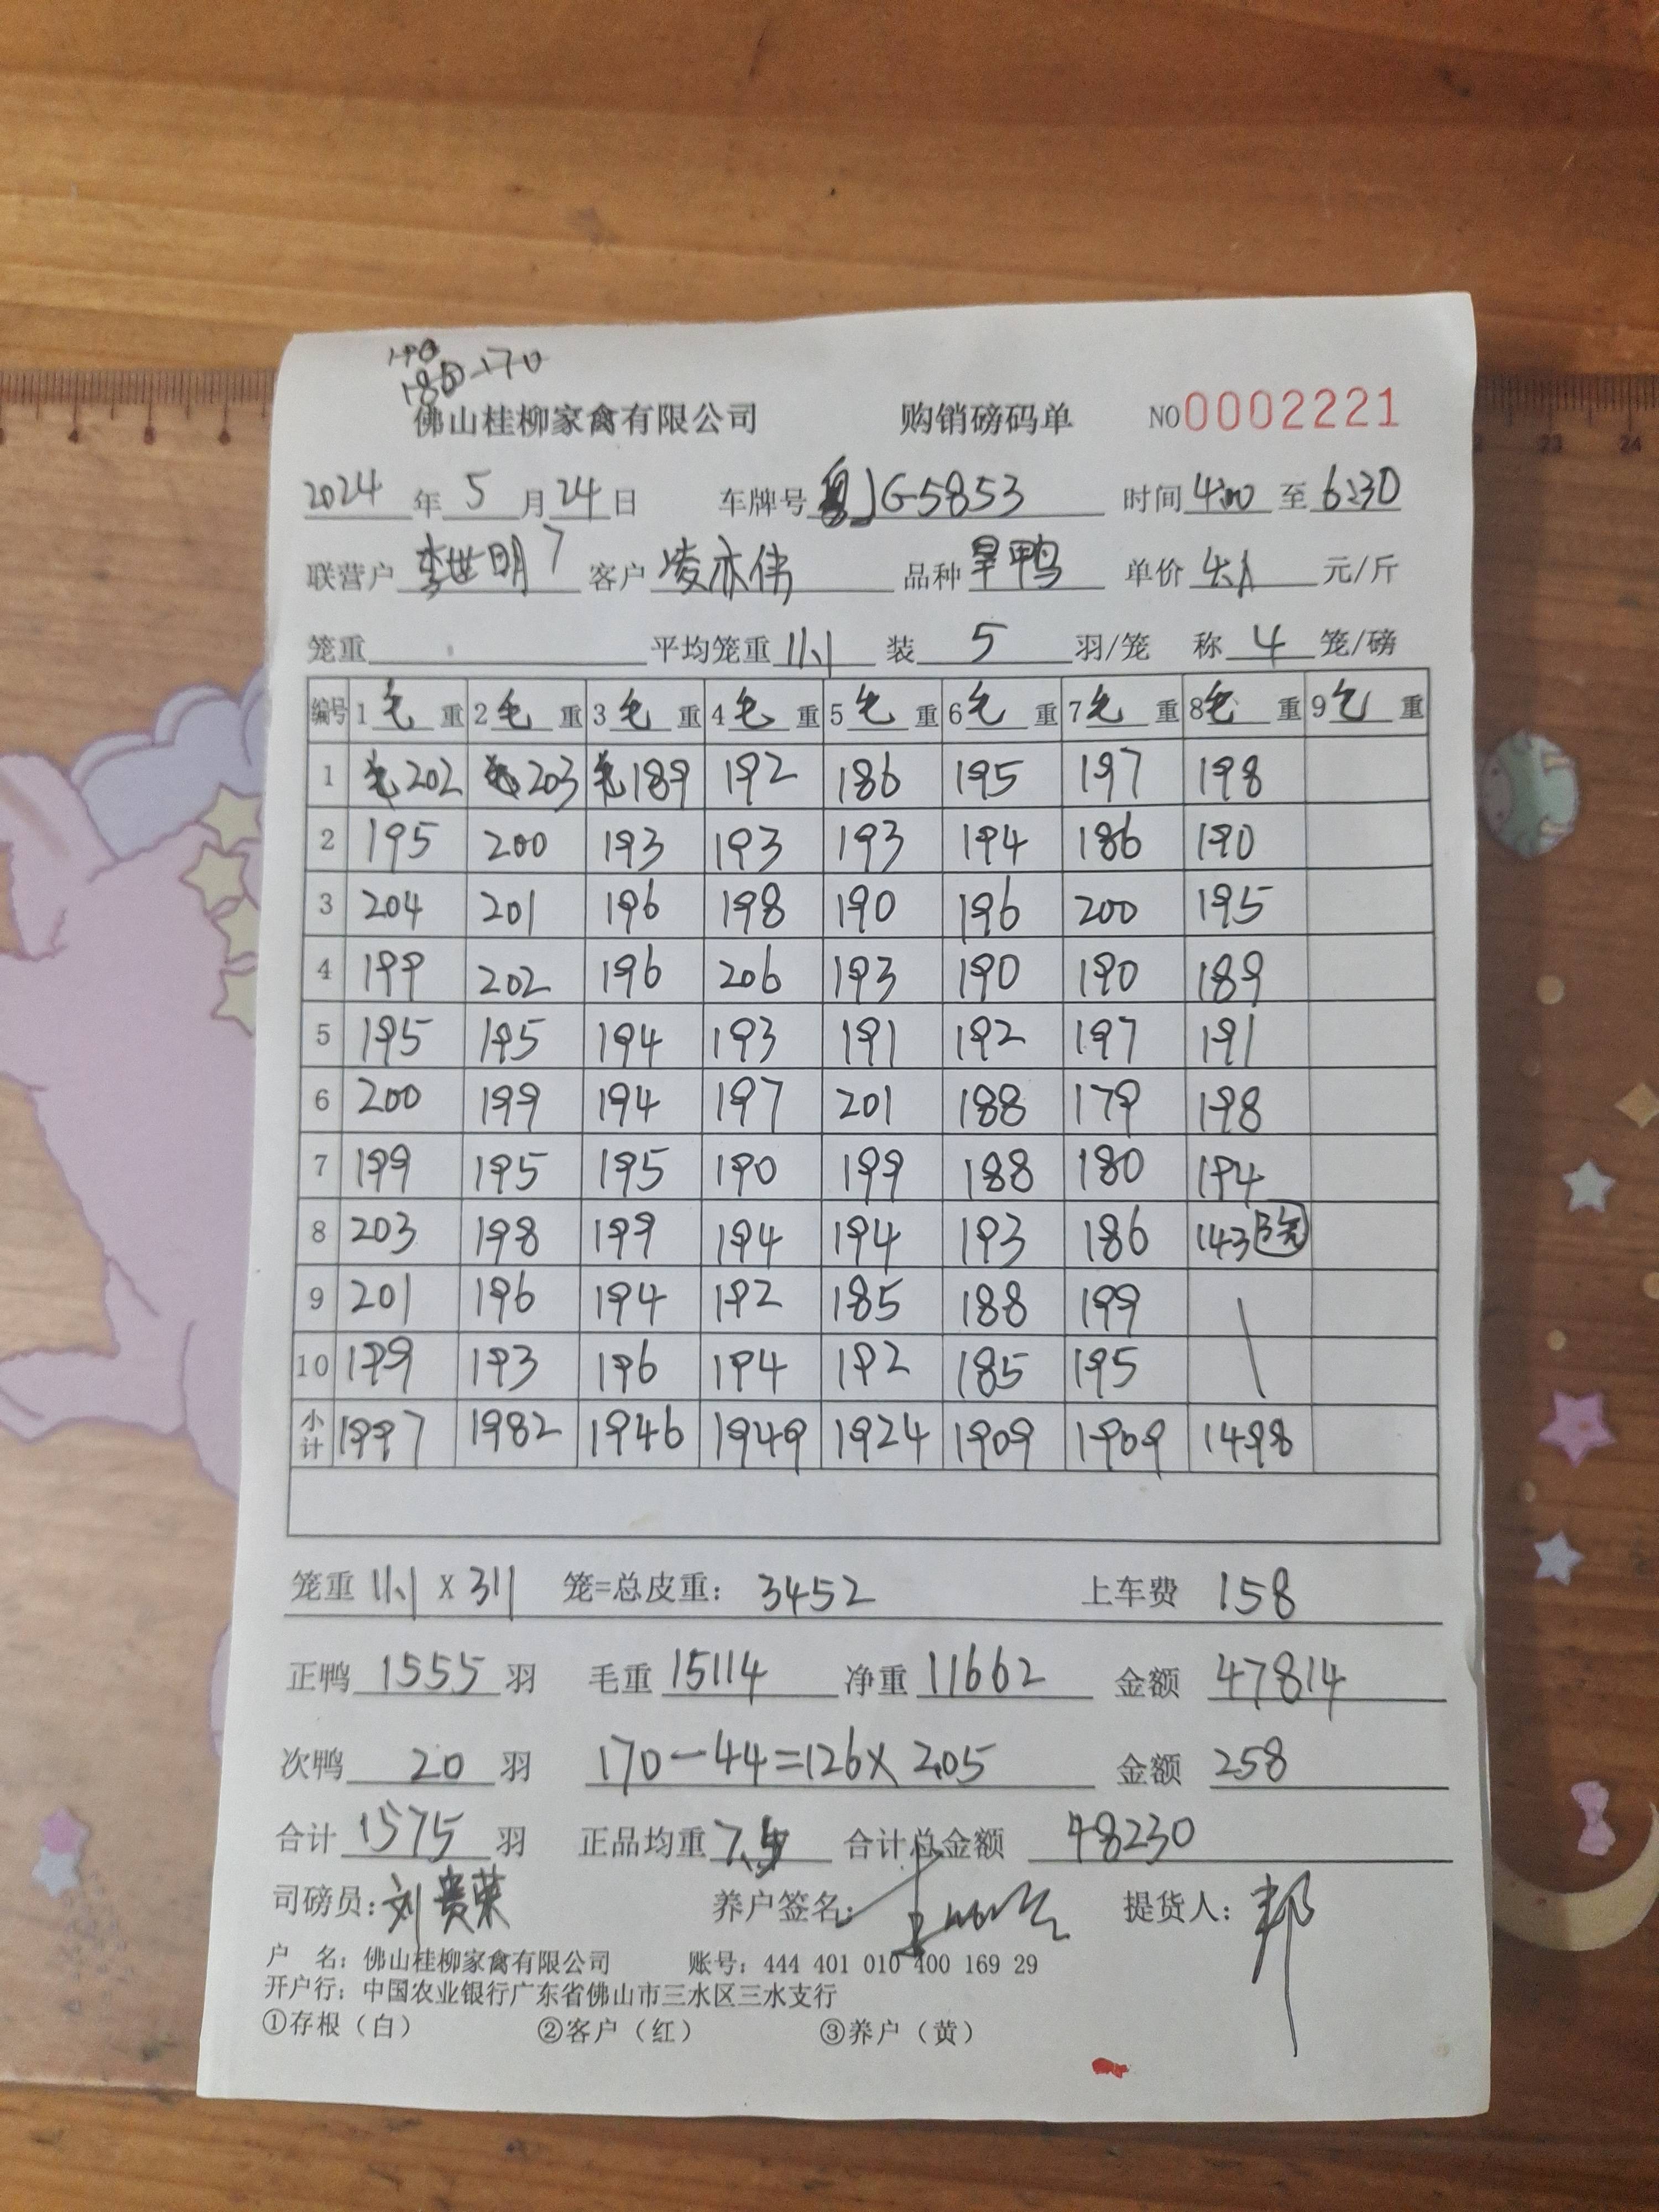 190
180-170
佛山桂柳家禽有限公司 购销磅码单 NO0002221
2024年5月24日 车牌号 粤JG5853 时间 4:00 至 6:30
联营户 李世明7 客户 凌亦伟 品种 旱鸭 单价 4.1 元/斤
笼重 平均笼重 11.1 装 5 羽/笼 称 4 笼/磅
编号 1毛重 2毛重 3毛重 4毛重 5毛重 6毛重 7毛重 8毛重 9毛重
1 毛202 毛203 毛189 192 186 195 197 198
2 195 200 193 193 193 194 186 190
3 204 201 196 198 190 196 200 195
4 199 202 196 206 193 190 190 189
5 195 195 194 193 191 192 197 191
6 200 199 194 197 201 188 179 198
7 199 195 195 190 199 188 180 194
8 203 198 199 194 194 193 186 143 3笼
9 201 196 194 192 185 188 199
10 199 193 196 194 192 185 195
小计 1997 1982 1946 1949 1924 1909 1909 1498
笼重 11.1 X 311 笼=总皮重: 3452 上车费 158
正鸭 1555 羽 毛重 15114 净重 11662 金额 47814
次鸭 20 羽 170-44=126× 2.05 金额 258
合计 1575 羽 正品均重 7.5 合计总金额 48230
司磅员: 刘贵荣 养户签名: 提货人: 邦
户 名: 佛山桂柳家禽有限公司 账号: 444 401 010 400 169 29
开户行: 中国农业银行广东省佛山市三水区三水支行
①存根(白) ②客户(红) ③养户(黄)